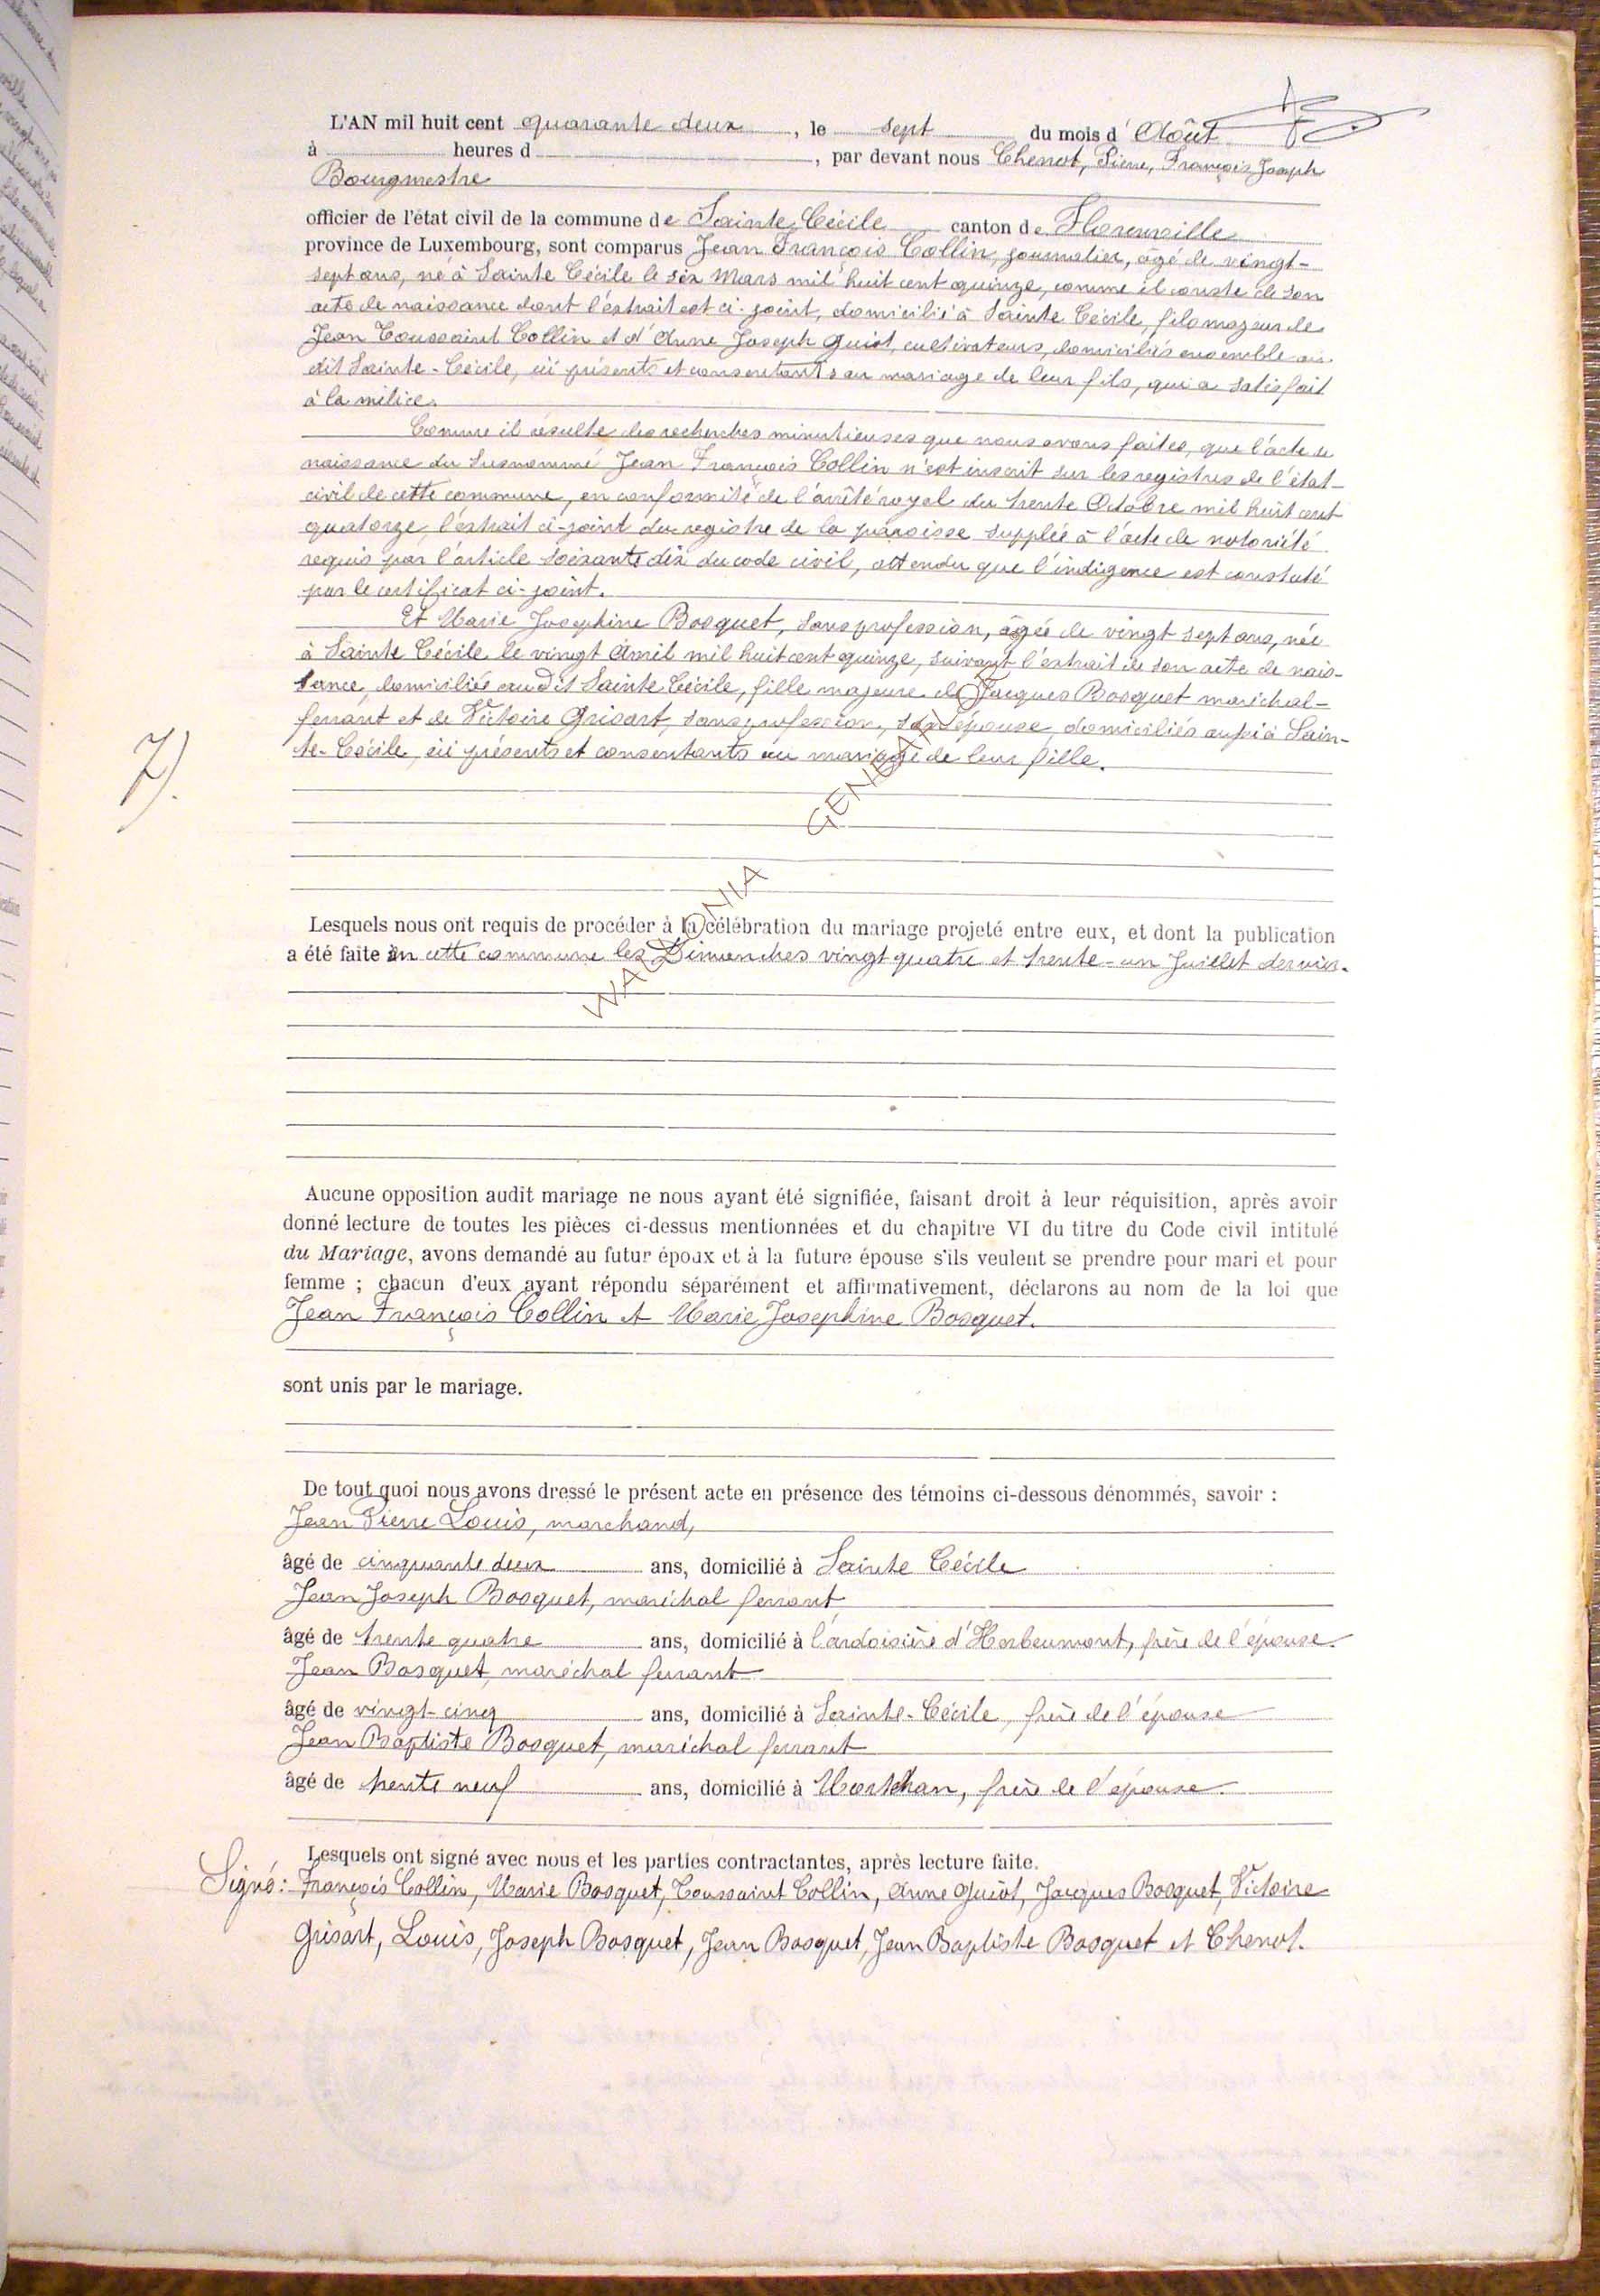 L'AN mil huit cent quarante deux, le sept du mois d'Août
à heures d , par devant nous Chenot, Pierre, François, Joseph
Bourgmestre
officier de l'état civil de la commune de Sainte Cécile canton de Florenville
province de Luxembourg, sont comparus Jean François Collin, journalier, âgé de vingt-
sept ans, né à Sainte Cécile le six Mars mil huit cent quinze, comme il conste de son
acte de naissance dont l'extrait est ci-joint, domicilié à Sainte Cécile, fils majeur de
Jean Toussaint Collin et d'Anne Joseph Guiot, cultivateurs, domiciliés ensemble au
dit Sainte-Cécile, ici présents et consentants au mariage de leur fils, qui a satisfait
à la milice.
Comme il résulte des recherches minutieuses que nous avons faites, que l'acte de
naissance du susnommé Jean François Collin n'est inscrit sur les registres de l'état-
civil de cette commune, en conformité de l'arrêté royal du trente Octobre mil huit cent
quatorze, l'extrait ci-joint du registre de la paroisse supplée à l'acte de notoriété
requis par l'article soixante dix du code civil, attendu que l'indigence est constaté
par le certificat ci-joint.
Et Marie Josephine Bosquet, sans profession, âgée de vingt sept ans, née
à Sainte Cécile le vingt Avril mil huit cent quinze, suivant l'extrait de son acte de nais-
sance, domiciliée audit Sainte Cécile, fille majeure de Jacques Bosquet maréchal-
ferrant et de Victoire Grisart, sans profession, son épouse, domiciliés aussi à Sain-
te-Cécile, ici présents et consentants au mariage de leur fille.
7).
WALLONIA GENEALOGY
Lesquels nous ont requis de procéder à la célébration du mariage projeté entre eux, et dont la publication
a été faite en cette commune les Dimanches vingt quatre et trente-un Juillet dernier.
Aucune opposition audit mariage ne nous ayant été signifiée, faisant droit à leur réquisition, après avoir
donné lecture de toutes les pièces ci-dessus mentionnées et du chapitre VI du titre du Code civil intitulé
du Mariage, avons demandé au futur époux et à la future épouse s'ils veulent se prendre pour mari et pour
femme ; chacun d'eux ayant répondu séparément et affirmativement, déclarons au nom de la loi que
Jean François Collin et Marie Josephine Bosquet.
sont unis par le mariage.
De tout quoi nous avons dressé le présent acte en présence des témoins ci-dessous dénommés, savoir :
Jean Pierre Louis, marchand,
âgé de cinquante deux ans, domicilié à Sainte Cécile
Jean Joseph Bosquet, maréchal ferrant
âgé de trente quatre ans, domicilié à l'ardoisière d'Herbeumont, frère de l'épouse.
Jean Bosquet, maréchal ferrant
âgé de vingt-cinq ans, domicilié à Sainte-Cécile, frère de l'épouse
Jean Baptiste Bosquet, maréchal ferrant
âgé de trente neuf ans, domicilié à Mortehan, frère de l'épouse.
Lesquels ont signé avec nous et les parties contractantes, après lecture faite.
Signé: François Collin, Marie Bosquet, Toussaint Collin, Anne Guiot, Jacques Bosquet, Victoire
Grisart, Louis, Joseph Bosquet, Jean Bosquet, Jean Baptiste Bosquet et Chenot.